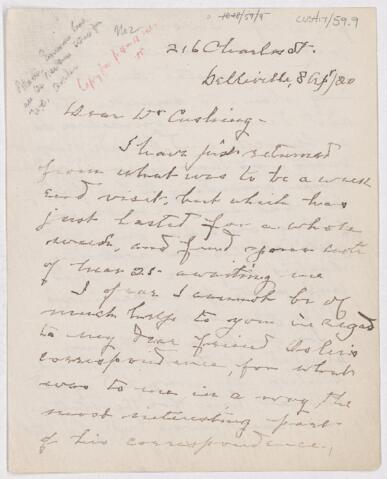 CUS417/59.9
No 2
216 Charles St.
Belleville, 8 Apl/20
Dear Dr Cushing -
I have just returned
from what was to be a week
end visit, but which has
just lasted for a whole
week, and find your note
of Mar 25 awaiting me
I fear I cannot be of
much help to you in regard
to my dear friend Osler's
correspondence, for what
was to me in a way the
most interesting part
of his correspondence,